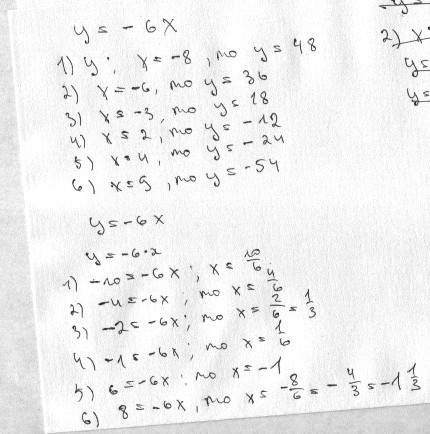 y = - 6x
1) y; x = -8, то y = 48
2) x = -6, то y = 36
3) x = -3, то y = 18
4) x = 2, то y = -12
5) x = 4, то y = -24
6) x = 9, то y = -54
y = -6x
y = -6·x
1) -10 = -6x; x = 10/6
2) -4 = -6x; то x = 4/6
3) -2 = -6x; то x = 2/6 = 1/3
4) -1 = -6x; то x = 1/6
5) 6 = -6x; то x = -1
6) 8 = -6x, то x = -8/6 = -4/3 = -1 1/3
2) x
y =
y =